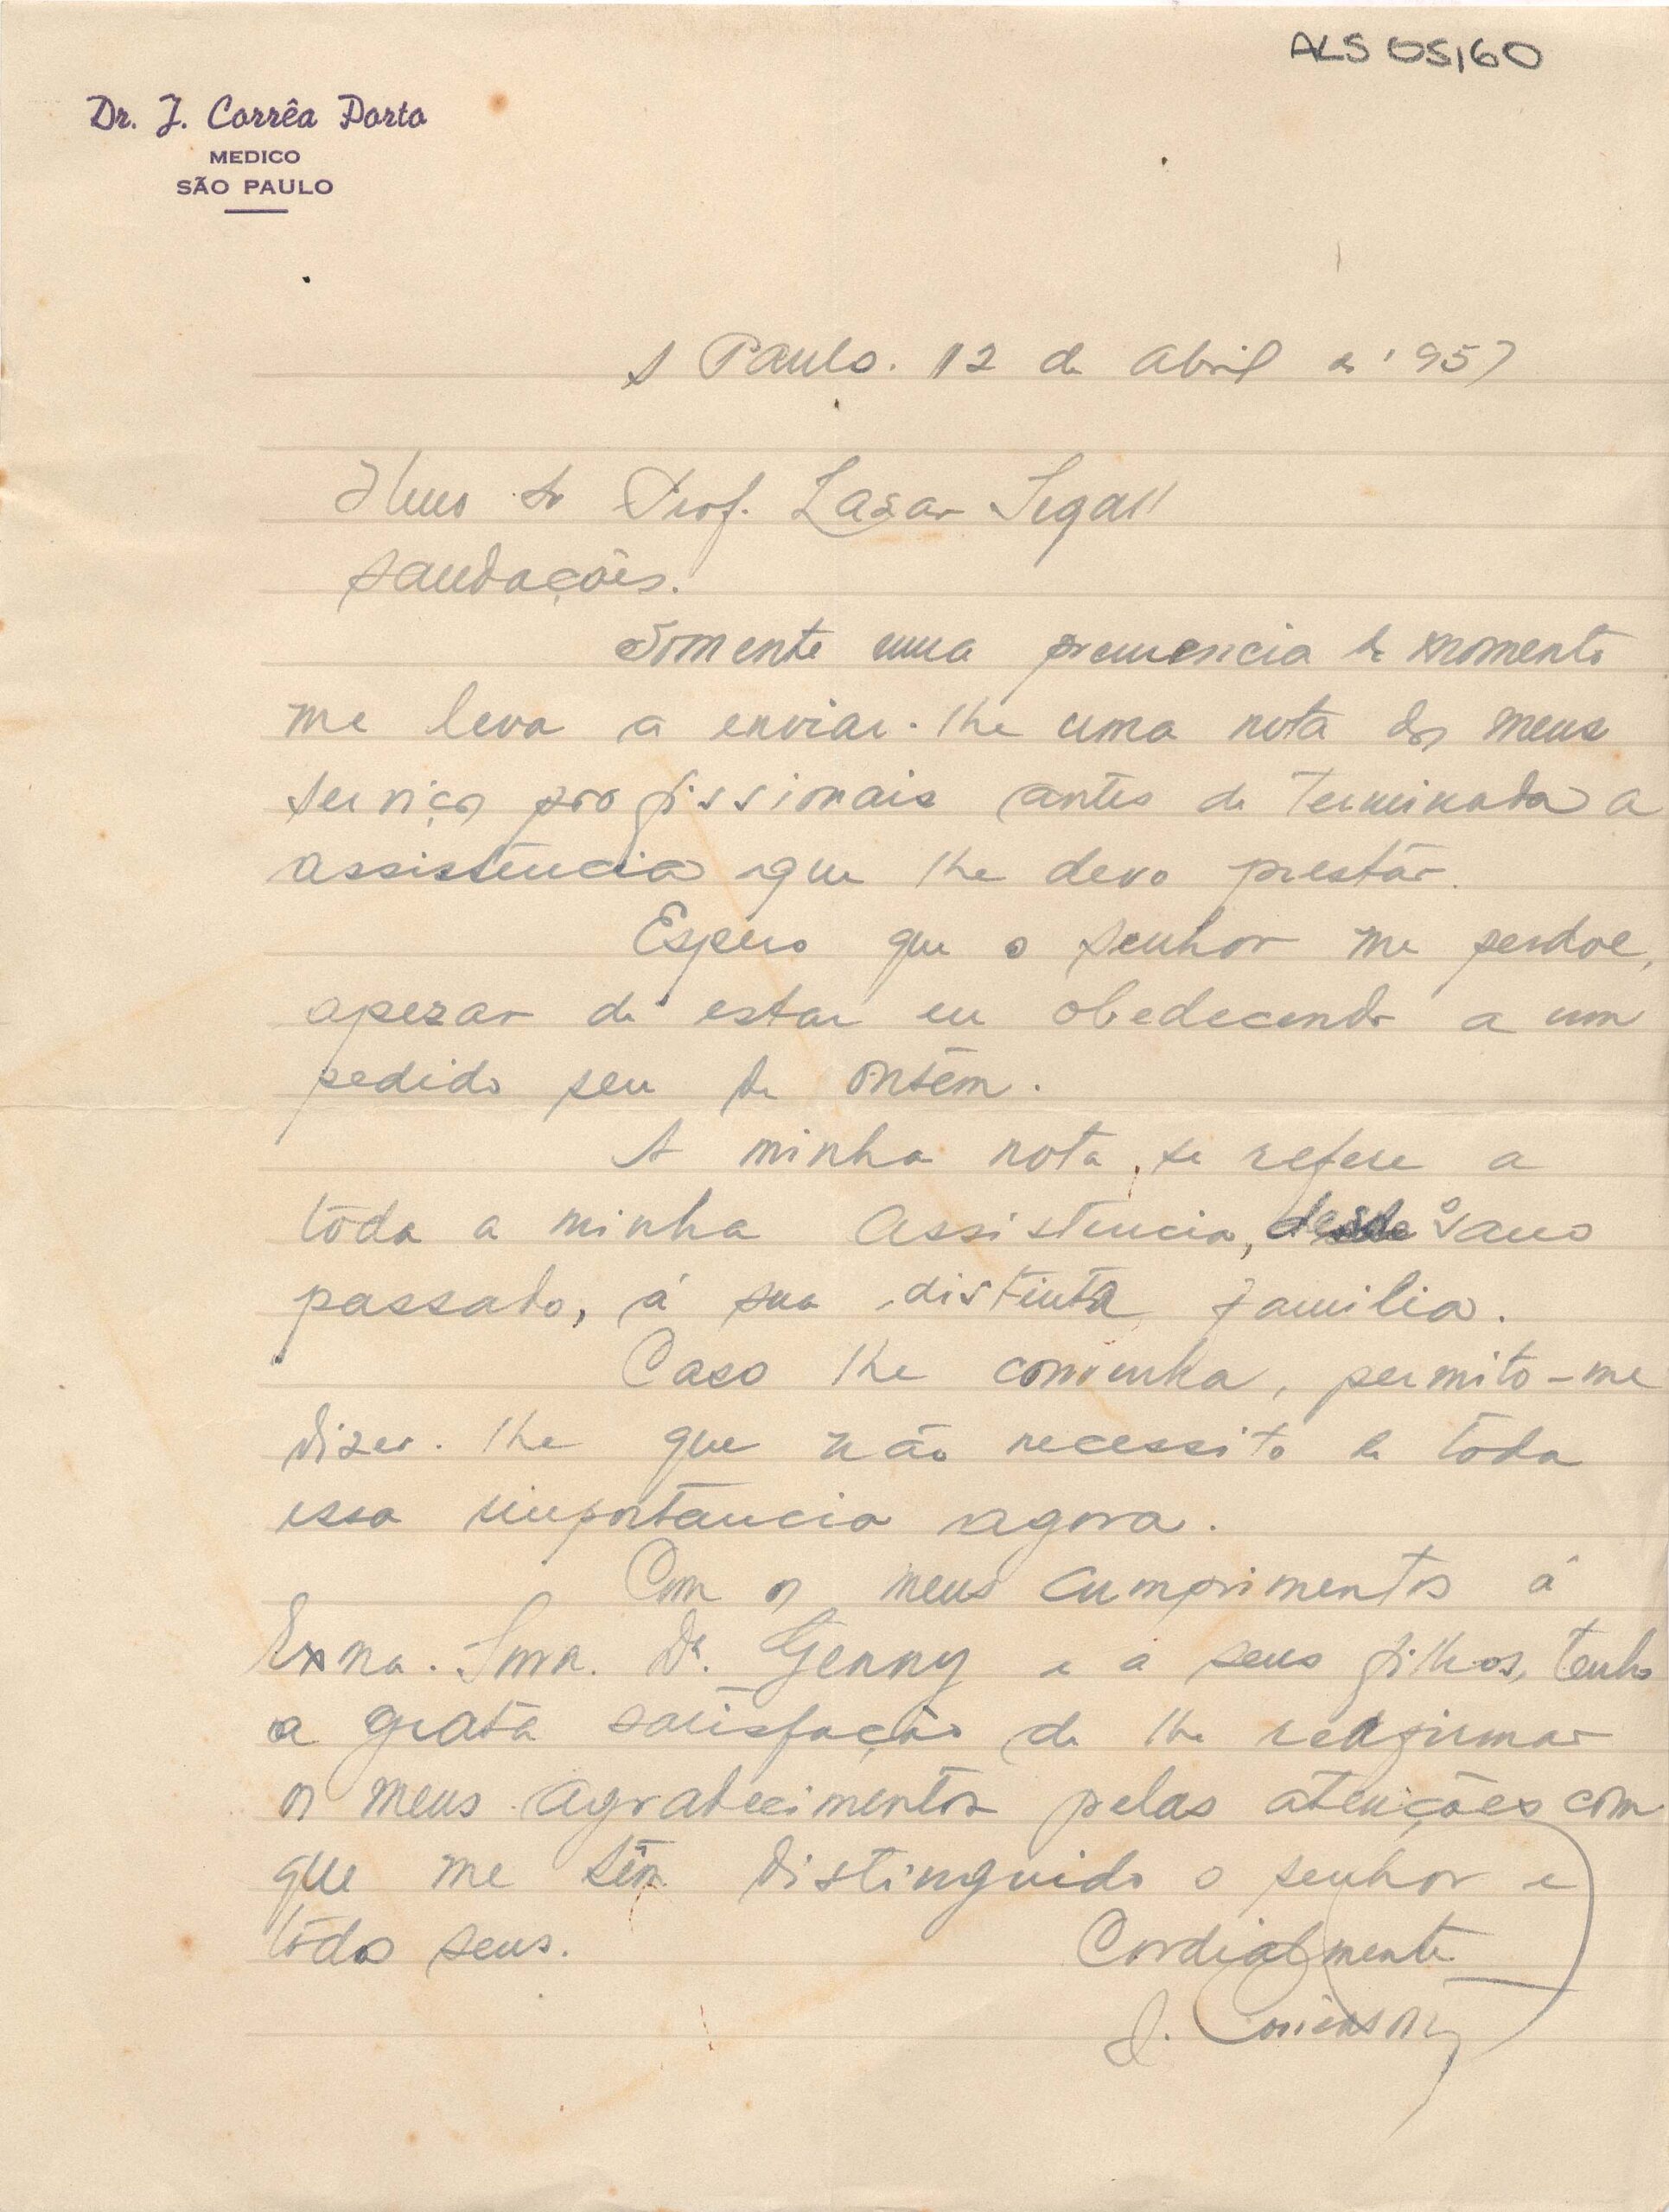 ALS 05160
Dr. J. Corrêa Porto
MEDICO
SÃO PAULO
S Paulo. 12 de Abril de 1957
Ilmo Sr Prof. Lasar Segall
Saudações.
Somente uma premencia de momento
me leva a enviar-lhe uma nota dos meus
serviços profissionais antes de terminada a
assistência que lhe devo prestar.
Espero que o senhor me perdoe,
apezar de estar eu obedecendo a um
pedido seu de ontem.
A minha nota, se refere a
tôda a minha assistencia, desde o ano
passado, á sua distinta familia.
Caso lhe convenha, permito-me
dizer-lhe que não necessito de tôda
essa importancia agora.
Com os meus cumprimentos á
Exma. Snra. Da. Jenny e a seus filhos, tenho
a grata satisfação de lhe reafirmar
os meus agradecimentos pelas atenções com
que me têm distinguido o senhor e
todos seus.
Cordialmente
J.